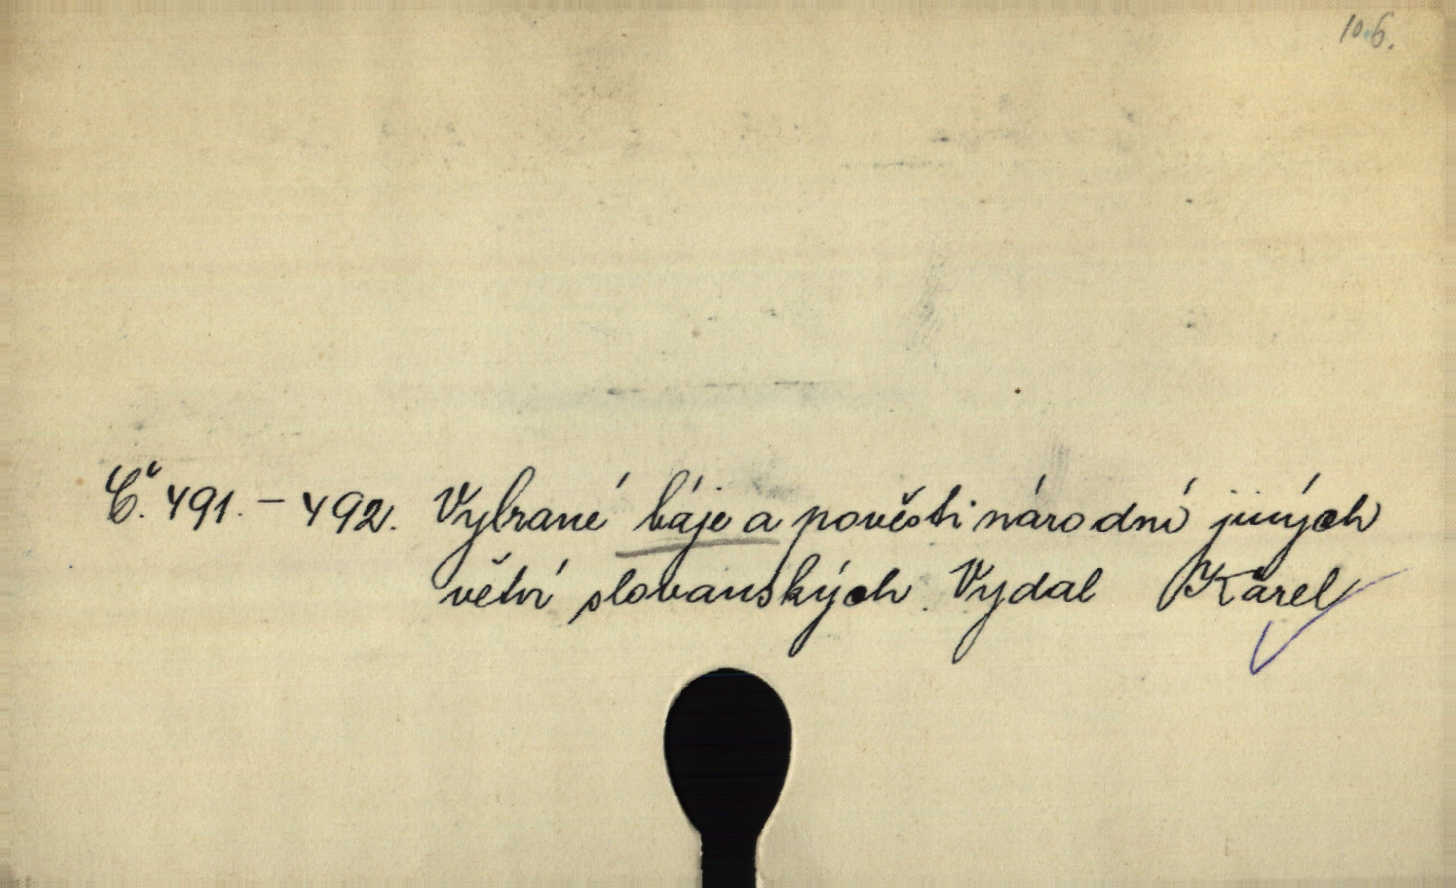 10.6.
Č. 491. – 492. Vybrané báje a pověsti národní jiných
větví slovanských. Vydal Karel